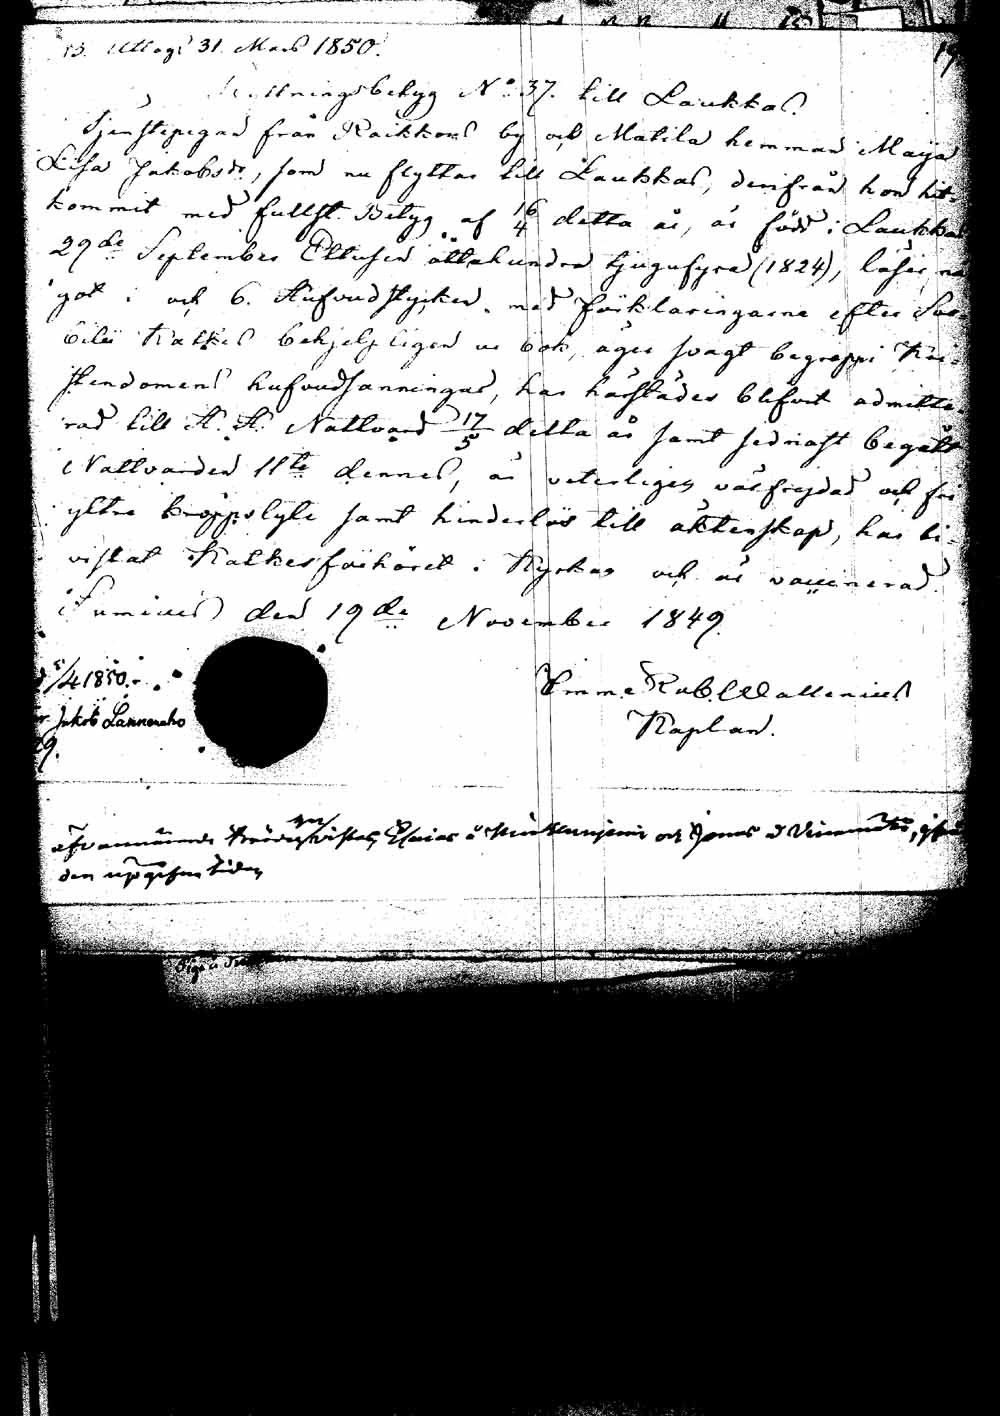 13. Uttogs 31. Mars 1850.
19
Flyttningsbetyg No 37. till Laukkas.
Tjenstepigan från Raikkonens by och Mattila hemman Maija
Lisa Jakobsdr., som nu flyttar till Laukkas, derifrån hon hit-
kommit med fullst. Betyg af 16/4 detta år, är född i Laukkas
29de September Ettusen åttahundra tjugufyra (1824), läser nå-
got i och 6. Hufvudstycken med förklaringarne efter Sve-
bilii Katkes behjelpligen ur bok, äger svagt begrepp i Kri-
stendomens hufvudsanningar, har härstädes blifvit admitte-
rad till H. H. Nattvard 17/5 detta år samt sednast begått
Nattvarden 11te dennes, är veterligen välfrejdad och fri
yttre kroppslyte samt hinderlös till äktenskap, har bi-
vistat Katkesförhöret i Kyrkan och är vaccinerad.
Sumiais den 19de November 1849.
5/4 1850.
Jakob Lannereho
29.
Emme Rob. Wallenius
Kaplan.
ofvannämnde Elias å och Jonas å
den uppgifna tiden